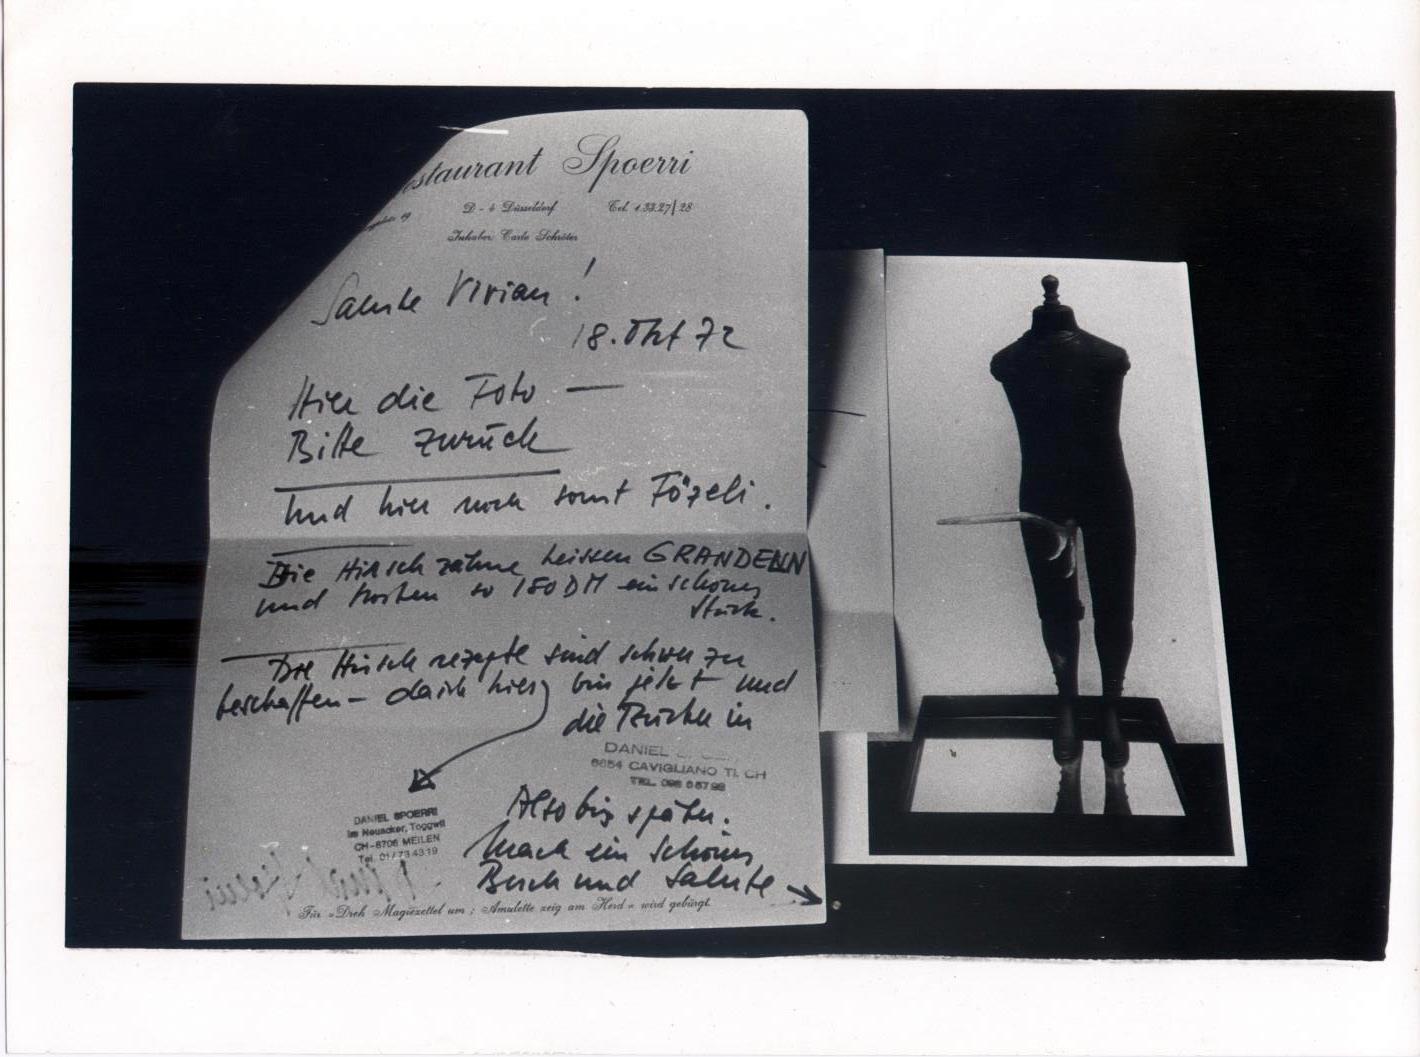 estaurant Spoerri
D - 4 Düsseldorf Tel. 1.33.27/28
Inhaber: Carlo Schröter
Salute Vivian!
18. Okt 72
Hier die Foto —
Bitte zurück
Und hier noch sonst Fözeli.
Die Hirschzähne heissen GRANDELN
und kosten so 180 DM ein schönes
Stück.
Die Hirschrezepte sind schwer zu
beschaffen — bin jetzt und
die Bücher in
DANIEL
6654 CAVIGLIANO TI. CH
Also bis später.
DANIEL SPOERRI
Im Neuacker, Toggwil
CH-8706 MEILEN
Tel. 01/73 43 19
Mach ein schönes
Buch und Salute
Für »Dreh Magiezettel um; Amulette zeig am Herd« wird gebürgt.